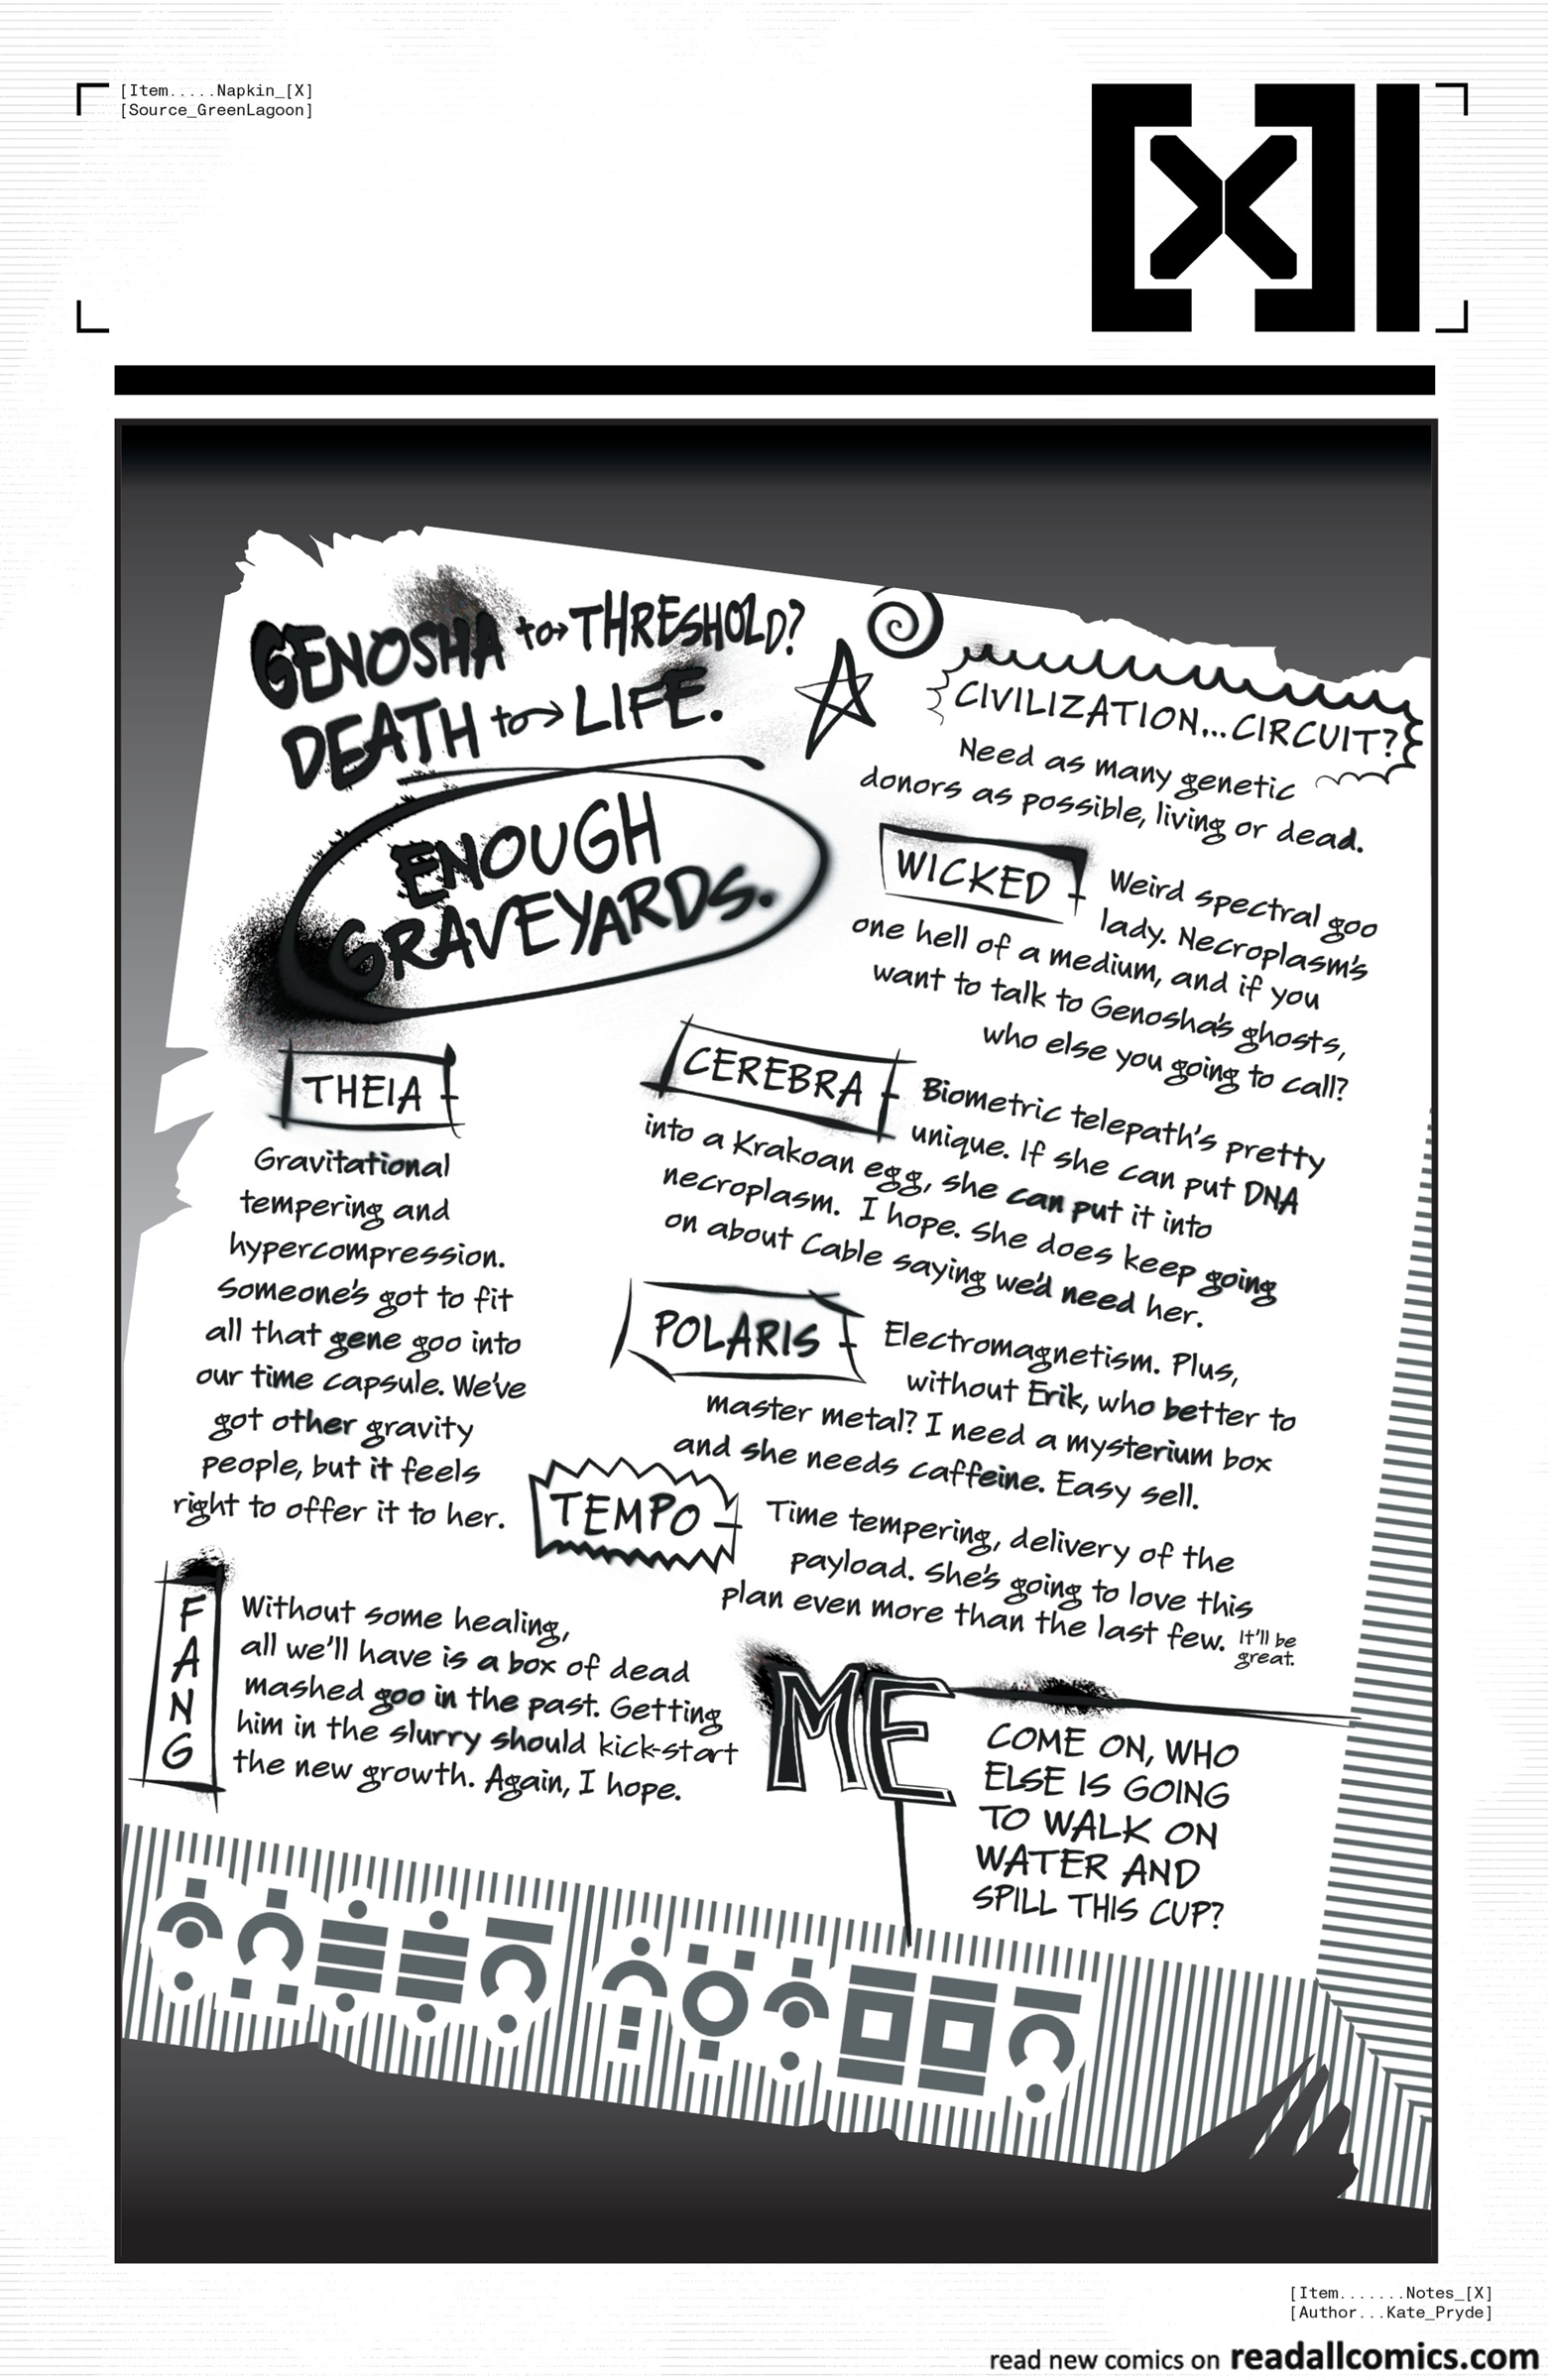 [Item.....Napkin_[X]
[Source_GreenLagoon]
[X]|
GENOSHA to→ THRESHOLD?
DEATH to→ LIFE.
ENOUGH
GRAVEYARDS.
CIVILIZATION...CIRCUIT?
Need as many genetic
donors as possible, living or dead.
WICKED - Weird spectral goo
lady. Necroplasm's
one hell of a medium, and if you
want to talk to Genosha's ghosts,
who else you going to call?
CEREBRA - Biometric telepath's pretty
unique. If she can put DNA
into a Krakoan egg, she can put it into
necroplasm. I hope. She does keep going
on about Cable saying we'd need her.
THEIA -
Gravitational
tempering and
hypercompression.
Someone's got to fit
all that gene goo into
our time capsule. We've
got other gravity
people, but it feels
right to offer it to her.
POLARIS - Electromagnetism. Plus,
without Erik, who better to
master metal? I need a mysterium box
and she needs caffeine. Easy sell.
TEMPO - Time tempering, delivery of the
payload. She's going to love this
plan even more than the last few. It'll be
great.
FANG
Without some healing,
all we'll have is a box of dead
mashed goo in the past. Getting
him in the slurry should kick-start
the new growth. Again, I hope.
ME
COME ON, WHO
ELSE IS GOING
TO WALK ON
WATER AND
SPILL THIS CUP?
[Item.......Notes_[X]
[Author...Kate_Pryde]
read new comics on readallcomics.com